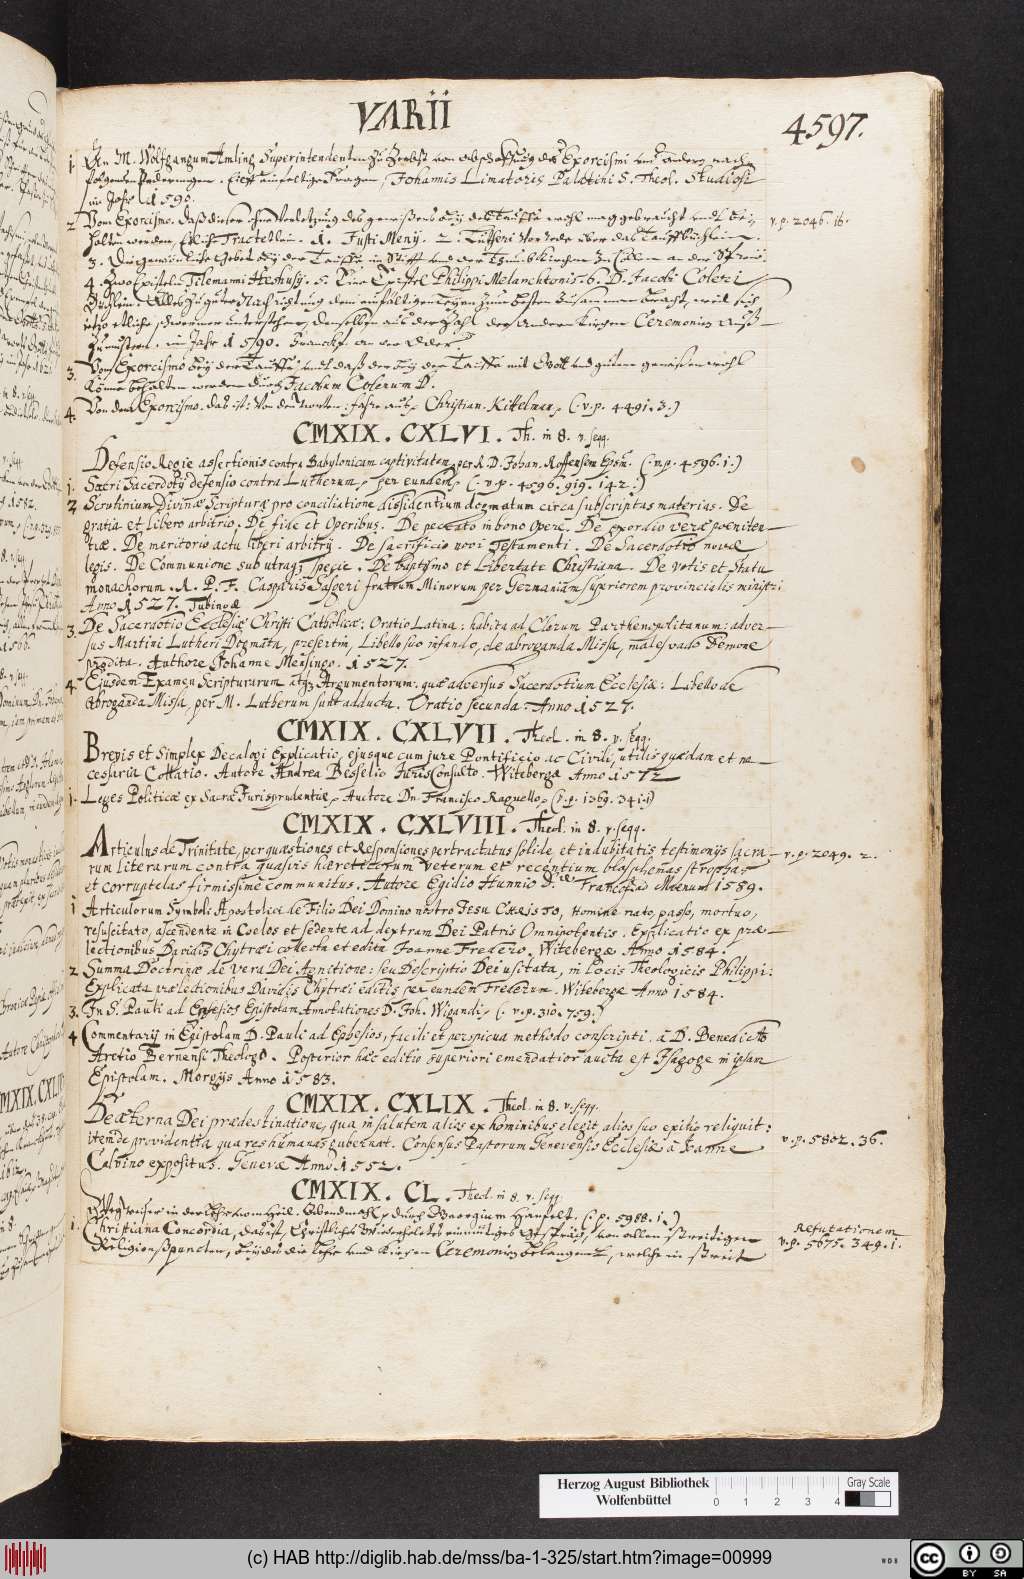 VARII
4597.
1. An M. Wolfgangum Amling Superintendenten zu Zerbst von abschaffung des Exorcismi und andern nach
folgenden Enderungen. Fragen, Johannis Limatoris Palatini S. Theol. Studiosi
im Jahr 1590.
2. Vom Exorcismo. Daß dieser ohne Verletzung des gewissens bey der Tauffe wohl mag gebraucht und be- v. p. 2046. 16.
halten werden, Etliche Tractetlein. 1. Justi Menij. 2. Lutheri Vorrede über das Tauffbüchlein.
3. Die gewönliche Gebet bey der Tauffe im Stifft und der Thumbkirchen zu Cölln an der Spree.
4. Zwo Episteln Tilemanni Heshusij. 5. Eine Epistel Philippi Melanchtonis. 6. D. Jacobi Coleri
Büchlein. Alles zu guter Nachrichtung den einfältigen Leyen zum besten zusammen bracht, weil sich
itzo etliche Schwermer unterstehen, denselben aus der Zahl der andern Kirchen Ceremonien auß-
zumustern. im Jahr 1590. Franckf. an der Oder.
3. Vom Exorcismo bey der Tauffe, und daß der bey der Tauffe mit Gott und gutem gewissen wohl
könne behalten werden durch Jacobum Colerum D.
4. Von dem Exorcismo. das ist: Von den worten: fahre aus, Christian. Kittelman, (. v. p. 4491. 3.)
CMXIX. CXLVI. Th. in 8. v. seqq.
Defensio Regie assertionis contra Babylonicam captivitatem, per R. D. Johan. Roffensem Epsm. (. v. p. 4596. 1.)
1. Sacri Sacerdotij defensio contra Lutherum, per eundem, (. v. p. 4596. 919. 142.)
2. Scrutinium Divinæ Scripturæ pro conciliatione dissidentium dogmatum circa subscriptas materias. De
gratia et libero arbitrio. De fide et Operibus. De peccato in bono Opere. De exordio veræ poeniten-
tiæ. De meritorio actu liberi arbitrij. De sacrificio novi Testamenti. De Sacerdotio novæ
legis. De Communione sub utraq; specie. De baptismo et Libertate Christiana. De votis et statu
monachorum. A. P. F. Casparis Sasgeri fratrum Minorum per Germaniam superiorem provincialis ministri.
Anno 1527. Tubingæ
3. De Sacerdotio Ecclesiæ Christi Catholicæ: Oratio Latina: habita ad Clerum Parthenopolitanum: adver-
sus Martini Lutheri Dogmata, presertim, Libello suo infando, de abroganda Missa, malesuado Demone
prodita. Authore Johanne Mensingo. 1527.
4. Ejusdem Examen Scripturarum atq; Argumentorum: quæ adversus Sacerdotium Ecclesiæ: Libello de
Abroganda Missa, per M. Lutherum sunt adducta. Oratio secunda. Anno 1527.
CMXIX. CXLVII. Theol. in 8. v. seqq.
Brevis et Simplex Decalogi Explicatio, ejusque cum jure Pontificio ac Civili, utilis quædam et ne-
cessaria Collatio. Autore Andrea Bisselio JurisConsulto. Witebergæ Anno 1572
1. Leges Politicæ ex Sacræ Jurisprudentiæ, Auctore Dn. Francisco Raguello, (v. p. 1369. 341.)
CMXIX. CXLVIII. Theol. in 8. v. seqq.
Articulus de Trinitate, per quæstiones et Responsiones pertractatus solide, et indubitatis testimonijs sacra- v. p. 2049. 2.
rum literarum contra quasvis hæreticorum veterum et recentium blasphemas strophas
et corruptelas firmissime communitus. Autore Egidio Hunnio D. Francofurti ad Mœnum 1589.
1 Articulorum Symboli Apostolici de Filio Dei Domino nostro JESU CHRISTO, Homine nato, passo, mortuo,
resuscitato, ascendente in Coelos et sedente ad dextram Dei Patris Omnipotentis. Explicatio ex præ-
lectionibus Davidis Chytræi collecta et edita Joanne Fredero. Witebergæ Anno 1584.
2 Summa Doctrinæ de vera Dei Agnitione: seu Descriptio Dei usitata, in Locis Theologicis Philippi:
Explicata prælectionibus Davidis Chytræi editis per eundem Frederum. Witebergæ Anno 1584.
3. In S. Pauli ad Ephesios Epistolam Annotationes D. Joh. Wigandi, (. v. p. 310. 759.)
4 Commentarij in Epistolam D. Pauli ad Ephesios, facili et perspicua methodo conscripti. a D. Benedicto
Aretio Bernensi Theologo. Posterior hæc editio superiori emendatior aucta est Isagoge in ipsam
Epistolam. Morgijs Anno 1583.
CMXIX. CXLIX. Theol. in 8. v. seqq.
De æterna Dei prædestinatione, qua in salutem alios ex hominibus elegit, alios suo exitio reliquit:
item de providentia qua res humanas gubernat. Consensus Pastorum Genevensis Ecclesiæ a Joanne v. p. 5802. 36.
Calvino expositus. Genevæ Anno 1552.
CMXIX. CL. Theol. in 8. v. seqq.
Wegweiser in der Lehre vom Heil. Abendmahl, durch Georgium Hanfelt. (. p. 5988. 1.)
1. Christiana Concordia, das ist, Christliches Wiederholetes einmütiges Gespräch, von allen streitigen Refutationem
Religionspuncten, beydes die Lehr und Kirchen Ceremonien belangendt, welche in streit v. p. 5675. 349. 1.
Herzog August Bibliothek
Wolfenbüttel
0 1 2 3 4
Gray Scale
(c) HAB http://diglib.hab.de/mss/ba-1-325/start.htm?image=00999
WDB
cc BY SA